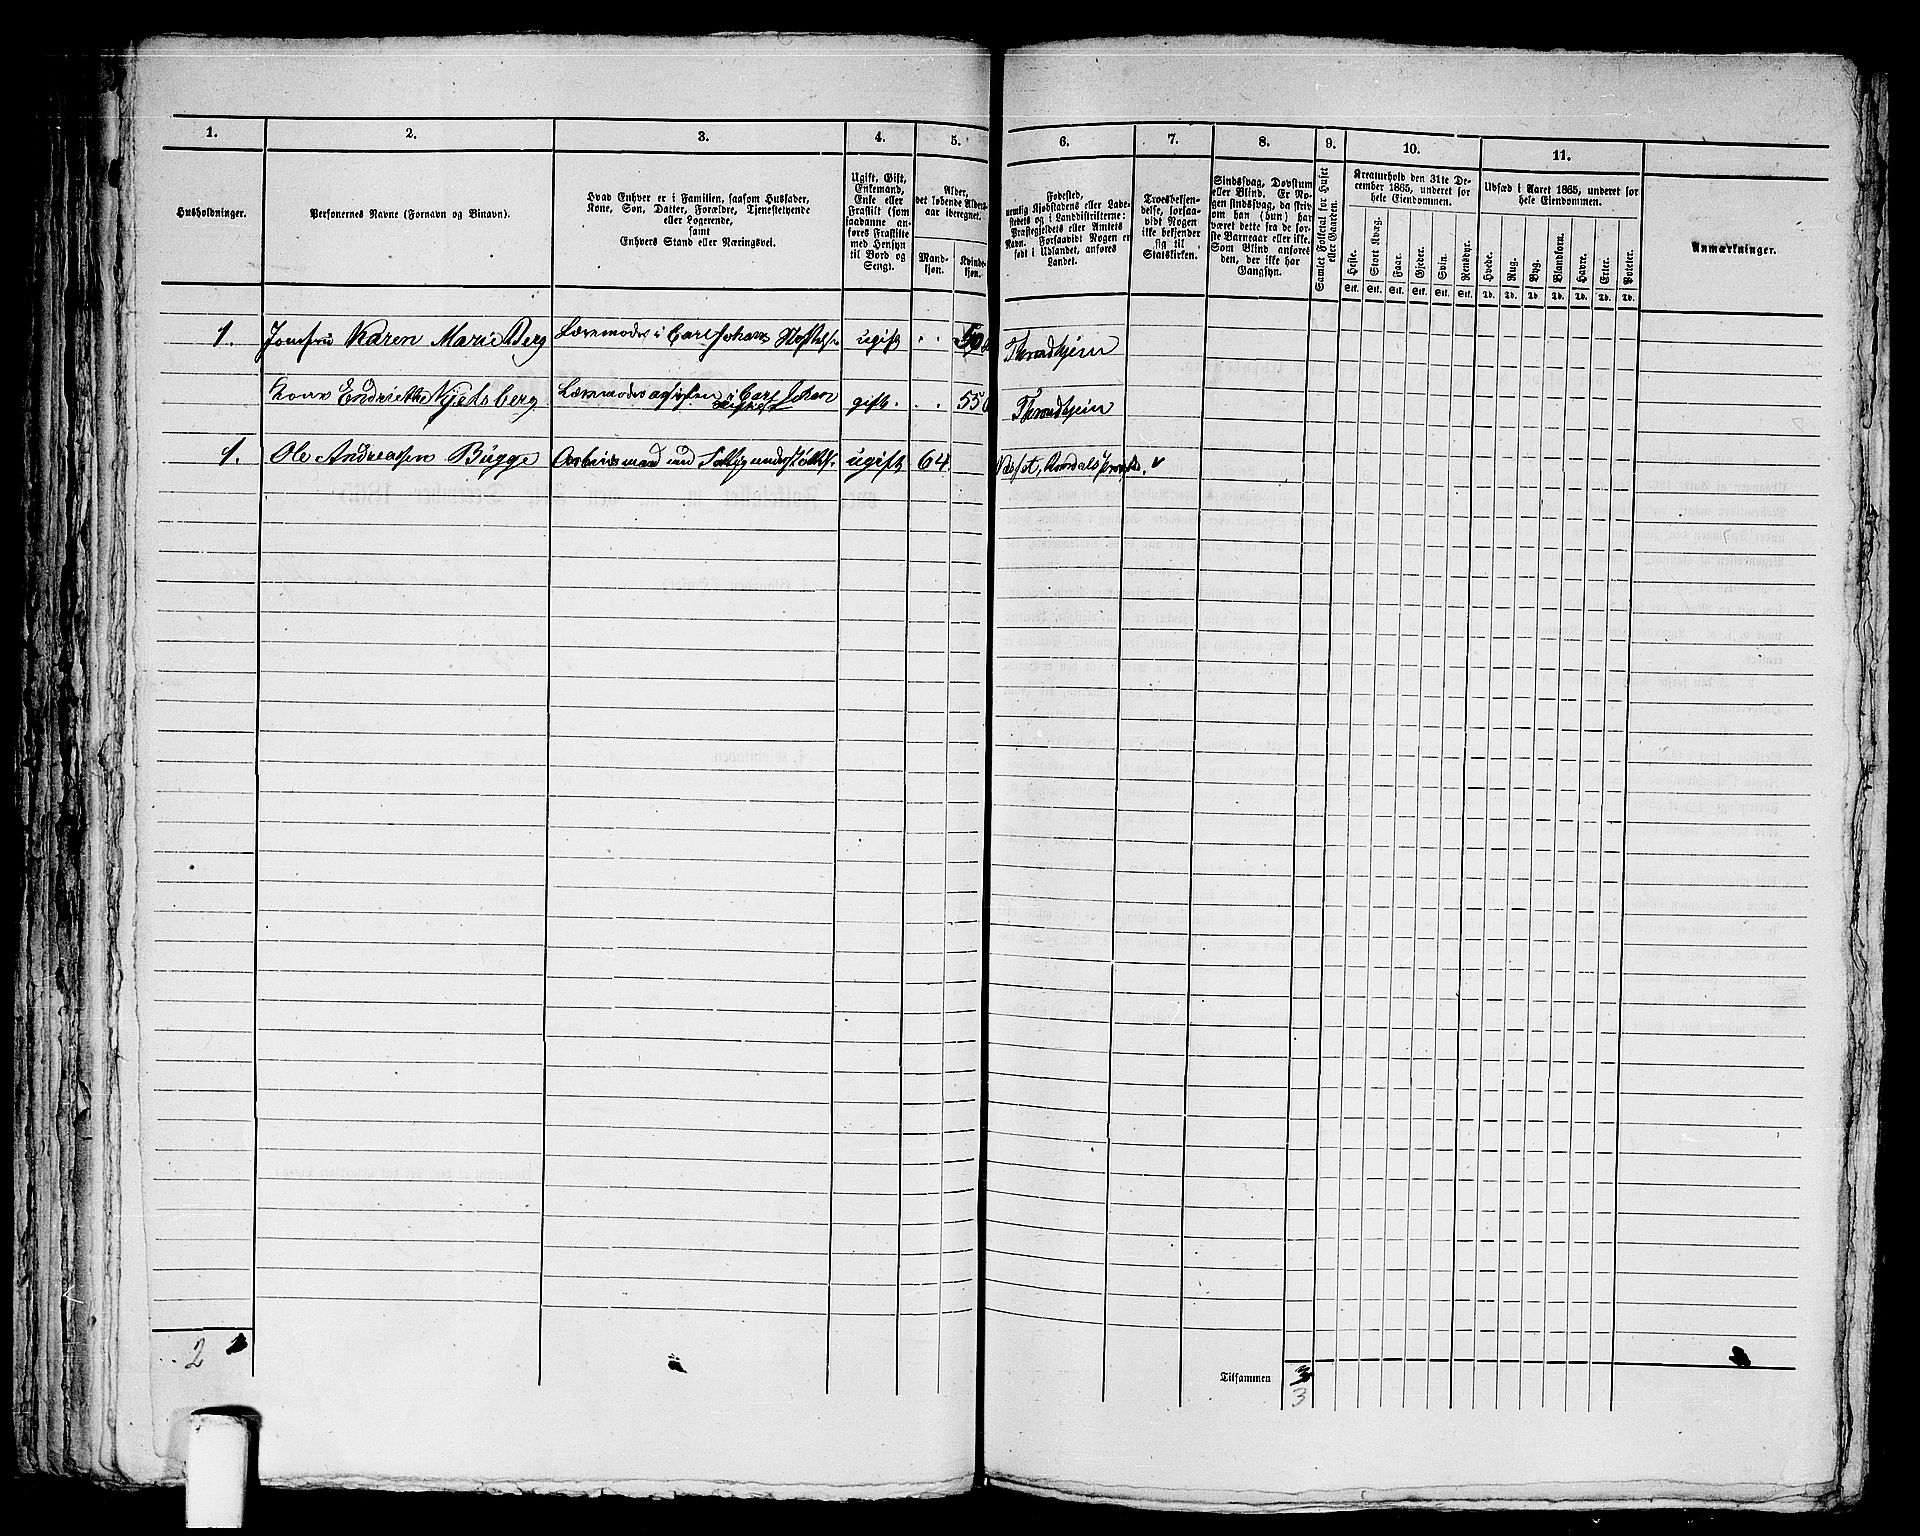 1. 2. 3. 4. 5. 6. 7. 8. 9. 10. 11.
Husholdninger.
Personernes Navne (Fornavn og Binavn).
Hvad Enhver er i Familien, saasom Husfader,
Kone, Søn, Datter, Forældre, Tjenestetyende
eller Logerende,
samt
Enhvers Stand eller Næringsvei.
Ugift, Gift,
Enkemand,
Enke eller
Fraskilt (som
saadanne an-
føres Fraskilte
med Hensyn
til Bord og
Seng).
Alder,
det løbende Alders-
aar iberegnet.
Mand-
kjøn.
Kvinde-
kjøn.
Fødested,
nemlig Kjøbstadens eller Lade-
stedets og i Landdistrikterne:
Præstegjeldets eller Amtets
Navn. Forsaavidt Nogen er
født i Udlandet, anføres
Landet.
Troesbekjen-
delse, forsaa-
vidt Nogen
ikke bekjender
sig til
Statskirken.
Sindssvag, Døvstum
eller Blind. Er No-
gen sindssvag, an-
føres om han (hun) har
været dette fra de før-
ste Barneaar eller ikke.
Som Blind anføres
den, der ikke har
Gangsyn.
Samlet Folketal for Huset
eller Gaarden.
Kreaturhold den 31te De-
cember 1865, underet for
hele Eiendommen.
Heste. Stort Kvæg. Faar. Gjeder. Svin. Rensdyr.
Stk. Stk. Stk. Stk. Stk. Stk.
Udsæd i Aaret 1865, underet for
hele Eiendommen.
Hvede. Rug. Byg. Blandkorn. Havre. Erter. Poteter.
Td. Td. Td. Td. Td. Td. Td.
Anmærkninger.
1. Jomfru Karen Marie Berg ugift Throndhjem
Kone Kjelsberg gift. 55 Throndhjem
1. Ole Andreassen Bugge ugift 64
2
Tilsammen 3
3